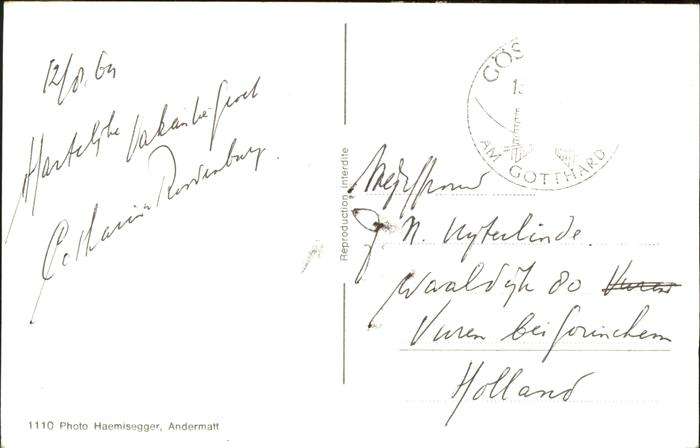 12/8.64
Hartelijke vakantiegroet
Catharina Roodenburg.
Reproduction interdite
GÖS
AM GOTTHARD
Mejuffrouw
N. Uyterlinde.
Waaldijk 80 Vuren
Vuren bei Gorinchem
Holland
1110 Photo Haemisegger, Andermatt